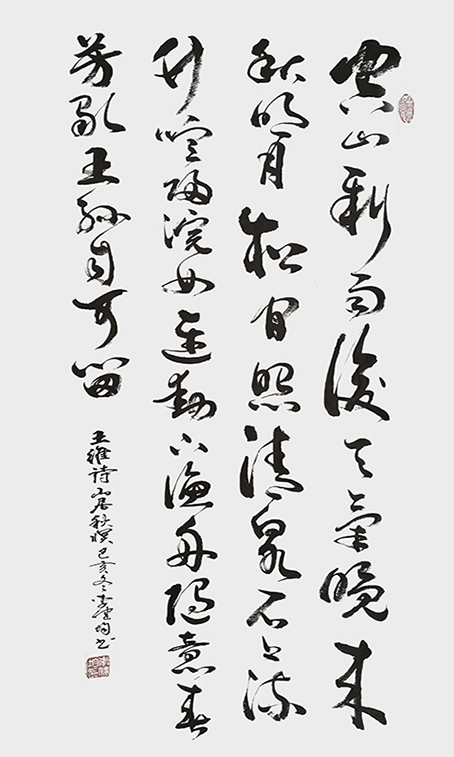 空山新雨後天氣晚來
秋明月松間照清泉石上流
竹喧歸浣女蓮動下漁舟隨意春
芳歇王孫自可留
王維詩山居秋暝己亥冬書